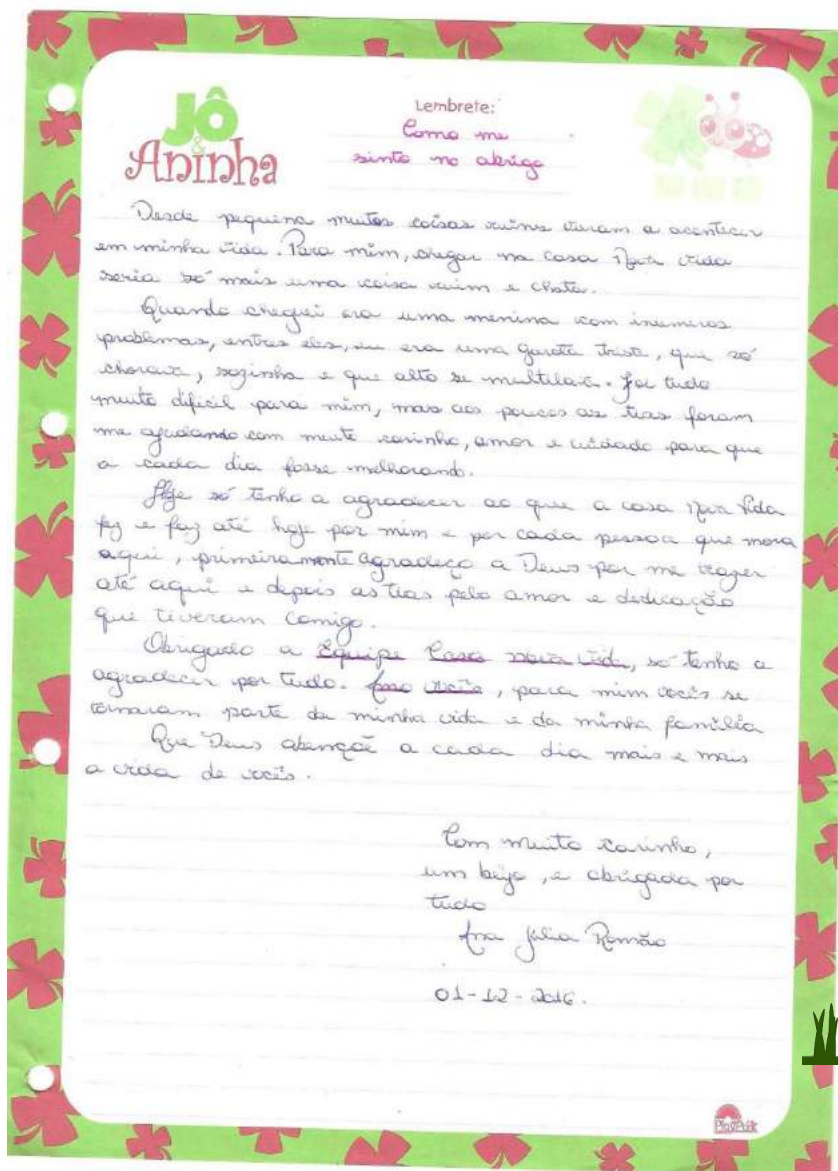 JÔ
&
Aninha
Lembrete:
Como me
sinto no abrigo
Desde pequena muitas coisas ruins vieram a acontecer
em minha vida. Para mim, chegar na casa Nova vida
seria só mais uma coisa ruim e chata.
Quando cheguei era uma menina com inumeros
problemas, entres eles, eu era uma garota triste, que só
chorava, sozinha e que alto se multilava. Foi tudo
muito dificil para mim, mas aos poucos as tias foram
me ajudando com muito carinho, amor e cuidado para que
a cada dia fosse melhorando.
Hoje só tenho a agradecer ao que a casa Nova Vida
fez e faz até hoje por mim e por cada pessoa que mora
aqui, primeiramente agradeço a Deus por me trazer
até aqui e depois as tias pelo amor e dedicação
que tiveram comigo.
Obrigado a Equipe Casa nova vida, só tenho a
agradecer por tudo. Amo vocês, para mim vocês se
tornaram parte da minha vida e da minha família
Que Deus abençoê a cada dia mais e mais
a vida de vocês.
Com muito carinho,
um beijo, e obrigada por
tudo
Ana Júlia Romão
01-12-2016.